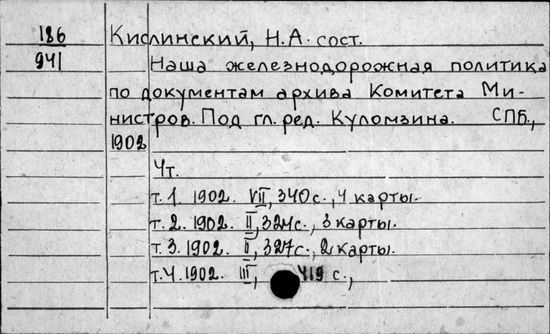 186 Кислинский, Н.А. сост.
941 Наша железнодорожная политика
по документам архива Комитета Ми-
нистров. Под гл. ред. Куломзина. СПб.,
1902
4т.
т.1. 1902. VII, 340с., 4 карты.
т.2. 1902. II, 324с., 3 карты.
т.3. 1902. II, 327с., 2 карты.
т.4. 1902. III, 419 с.,